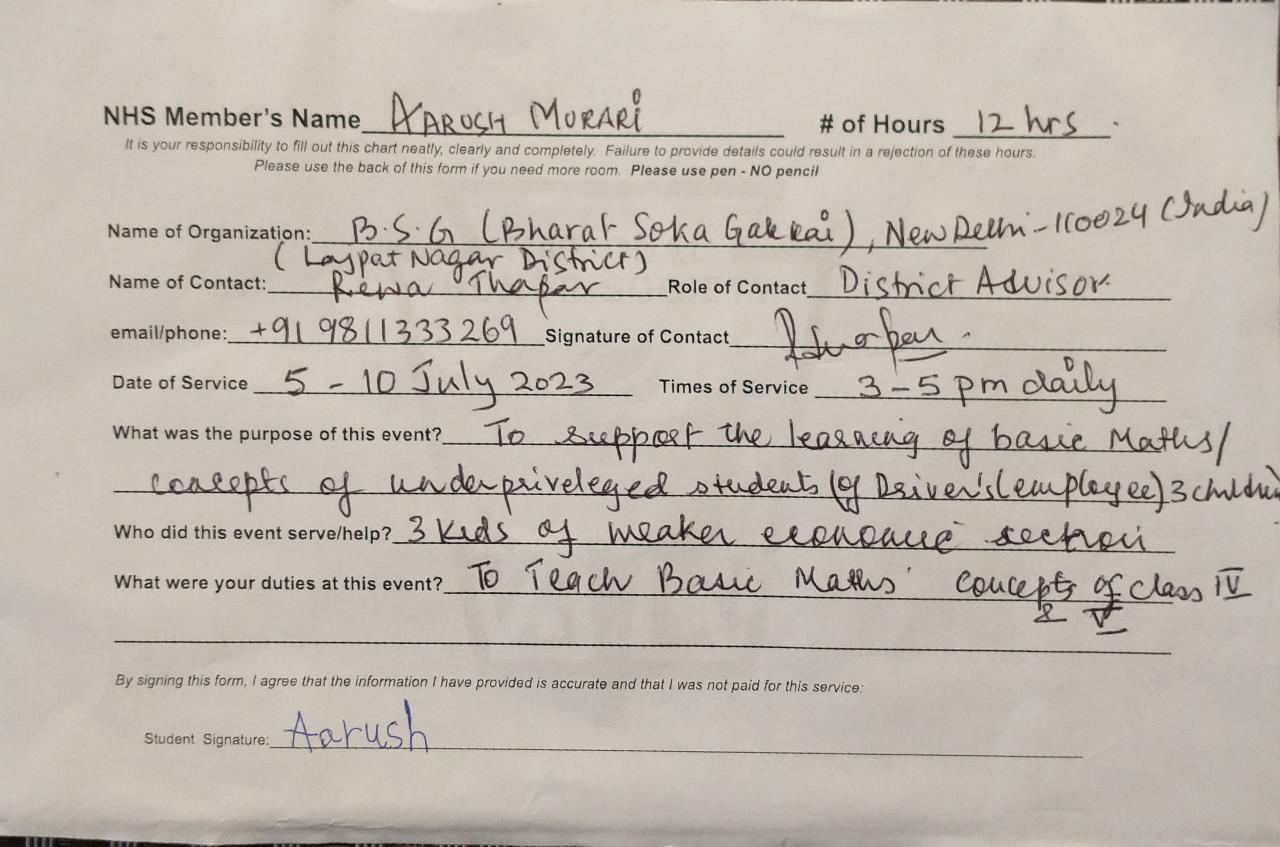 NHS Member's Name AARUSH MURARI # of Hours 12 hrs.
It is your responsibility to fill out this chart neatly, clearly and completely. Failure to provide details could result in a rejection of these hours.
Please use the back of this form if you need more room. Please use pen - NO pencil
Name of Organization: B.S.G (Bharat Soka Gakkai), New Delhi-110024 (India)
(Lajpat Nagar District)
Name of Contact: Rewa Thapar Role of Contact District Advisor.
email/phone: +91 9811333269 Signature of Contact
Date of Service 5 - 10 July 2023 Times of Service 3-5 pm daily
What was the purpose of this event? To support the learning of basic Maths/
concepts of underpriveleged students (of Driver's (employee) 3 children
Who did this event serve/help? 3 kids of weaker economic section
What were your duties at this event? To Teach Basic Maths' concepts of class IV
& V
By signing this form, I agree that the information I have provided is accurate and that I was not paid for this service:
Student Signature: Aarush